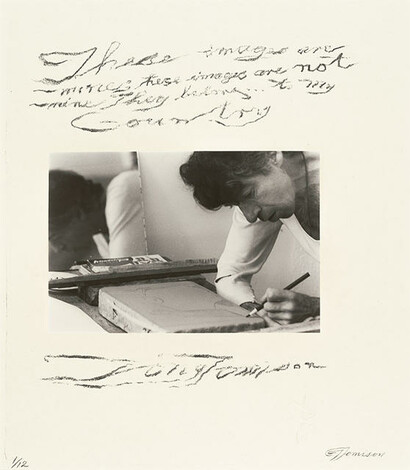 These images are
mine, these images are not
mine They belong... to my
Country
1/12